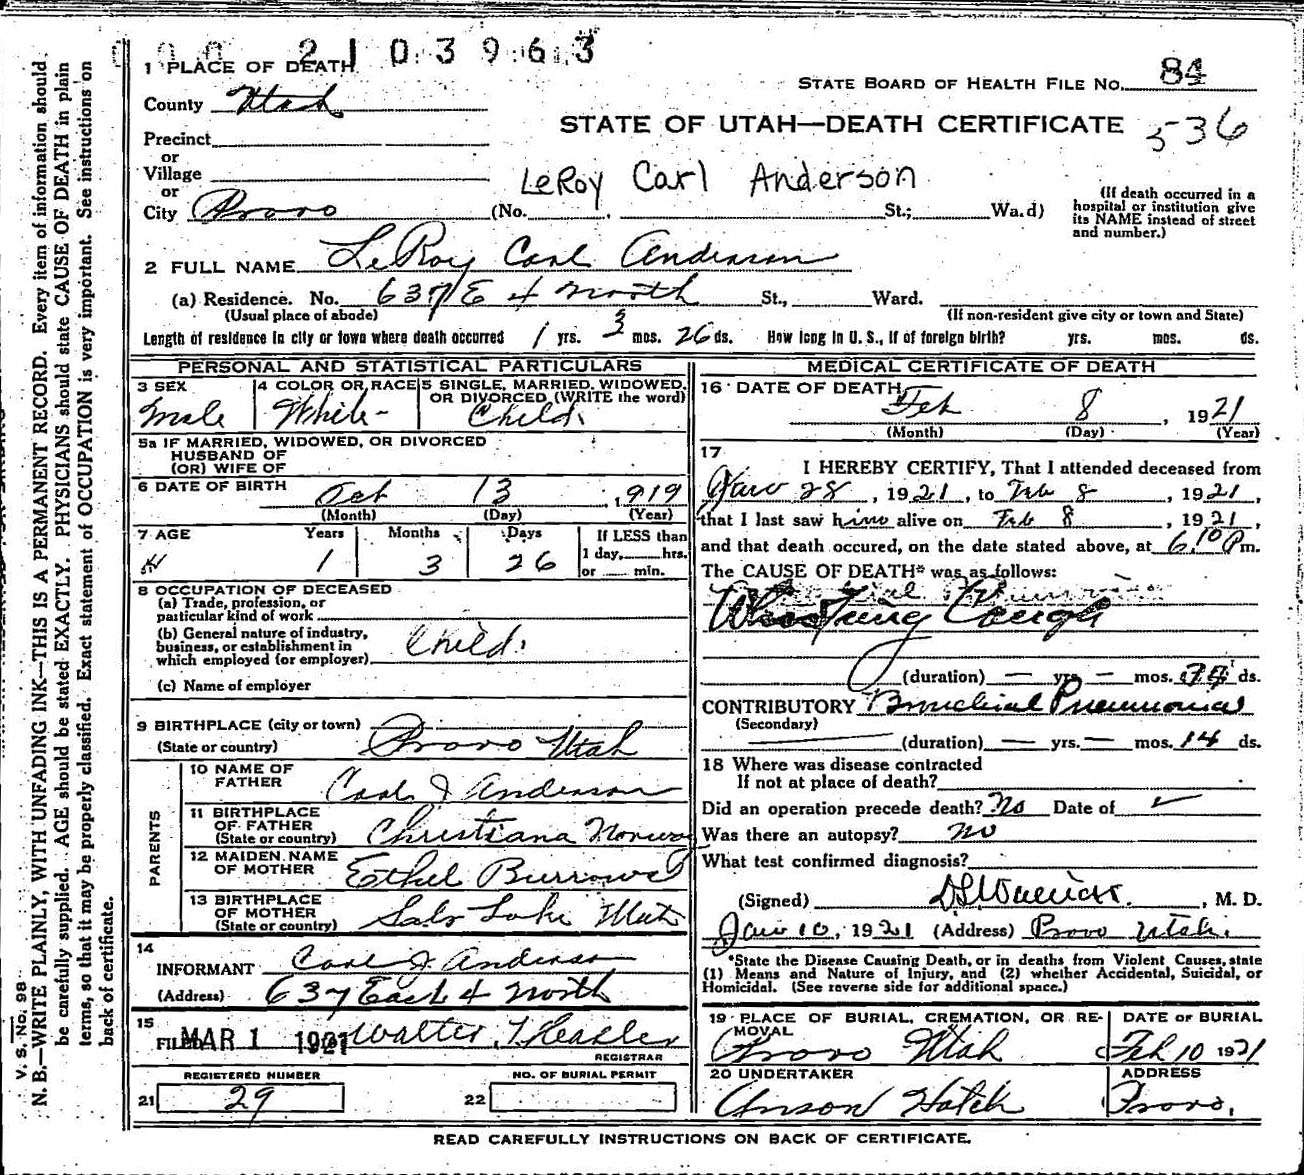 2103963
1 PLACE OF DEATH
STATE BOARD OF HEALTH FILE NO. 84
County Utah
STATE OF UTAH—DEATH CERTIFICATE 536
Precinct
or
Village
LeRoy Carl Anderson
or
City Provo (No. , St.; Wa.d)
(If death occurred in a hospital or institution give its NAME instead of street and number.)
2 FULL NAME LeRoy Carl Anderson
(a) Residence. No. 637 E 4 North St., Ward.
(Usual place of abode) (If non-resident give city or town and State)
Length of residence in city or town where death occurred 1 yrs. 3 mos. 26 ds. How long in U. S., if of foreign birth? yrs. mos. ds.
PERSONAL AND STATISTICAL PARTICULARS
3 SEX 4 COLOR OR RACE 5 SINGLE, MARRIED, WIDOWED, OR DIVORCED (WRITE the word)
Male White Child.
5a IF MARRIED, WIDOWED, OR DIVORCED
HUSBAND OF
(OR) WIFE OF
6 DATE OF BIRTH Oct 13, 1919
(Month) (Day) (Year)
7 AGE Years Months Days If LESS than
1 day, hrs.
or min.
1 3 26
8 OCCUPATION OF DECEASED
(a) Trade, profession, or
particular kind of work
(b) General nature of industry,
business, or establishment in
which employed (or employer) Child.
(c) Name of employer
9 BIRTHPLACE (city or town)
(State or country) Provo Utah
PARENTS
10 NAME OF
FATHER Carl J Anderson
11 BIRTHPLACE
OF FATHER
(State or country) Christiana Norway
12 MAIDEN NAME
OF MOTHER Ethel Burrows
13 BIRTHPLACE
OF MOTHER
(State or country) Salt Lake Utah
14
INFORMANT Carl J Anderson
(Address) 637 East 4 North
15
FILED MAR 1 1921 Walter T. Hasler
REGISTRAR
REGISTERED NUMBER NO. OF BURIAL PERMIT
21 29 22
MEDICAL CERTIFICATE OF DEATH
16 DATE OF DEATH
Feb 8, 1921
(Month) (Day) (Year)
17
I HEREBY CERTIFY, That I attended deceased from
Jan 28, 1921, to Feb 8, 1921,
that I last saw him alive on Feb 8, 1921,
and that death occured, on the date stated above, at 6.10 Pm.
The CAUSE OF DEATH* was as follows:
Whooping Cough
(duration) — yrs. — mos. ds.
CONTRIBUTORY Bronchial Pneumonia
(Secondary)
(duration) — yrs. — mos. 14 ds.
18 Where was disease contracted
If not at place of death?
Did an operation precede death? No Date of
Was there an autopsy? no
What test confirmed diagnosis?
(Signed) , M. D.
Jan 10, 1921 (Address) Provo Utah.
*State the Disease Causing Death, or in deaths from Violent Causes, state
(1) Means and Nature of Injury, and (2) whether Accidental, Suicidal, or
Homicidal. (See reverse side for additional space.)
19 PLACE OF BURIAL, CREMATION, OR RE- DATE OF BURIAL
MOVAL
Provo Utah Feb 10 1921
20 UNDERTAKER ADDRESS
Anson Hatch Provo.
READ CAREFULLY INSTRUCTIONS ON BACK OF CERTIFICATE.
V. S. No. 98
N. B.—WRITE PLAINLY, WITH UNFADING INK—THIS IS A PERMANENT RECORD. Every item of information should
be carefully supplied. AGE should be stated EXACTLY. PHYSICIANS should state CAUSE OF DEATH in plain
terms, so that it may be properly classified. Exact statement of OCCUPATION is very important. See instructions on
back of certificate.